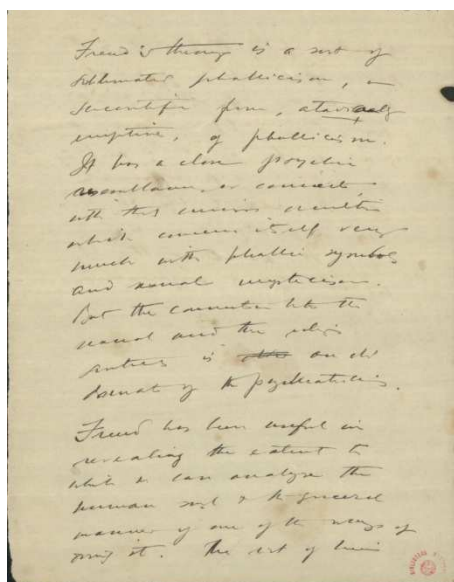 Freud's theory is a sort of
sublimated phallicism, a
scientific form, atavically
eruptive, of phallicism.
It has a close psychic
resemblance, or connects,
with that curious occultis
which concerns itself very
much with phallic symbols
and sexual mysticism.
But the connection btw the
sexual and the
is an old
of the
Freud has been useful in
revealing the extent to
which we can analyze the
human soul & the general
manner of one of the ways of
doing it. The rest of him